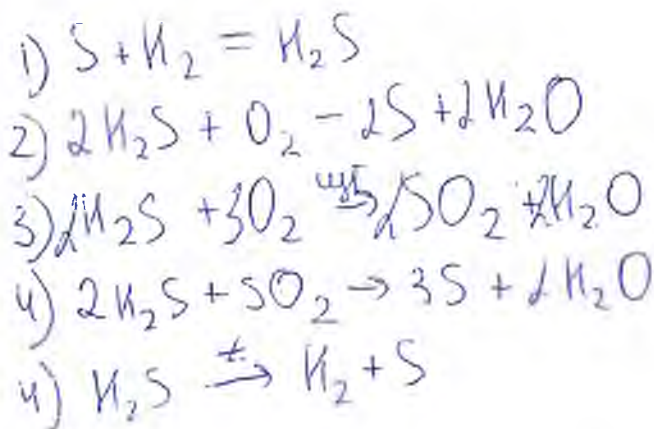 1) S + H₂ = H₂S
2) 2H₂S + O₂ - 2S + 2H₂O
3) 2H₂S + 3O₂ → 2SO₂ + 2H₂O
4) 2H₂S + SO₂ → 3S + 2H₂O
4) H₂S t→ H₂ + S